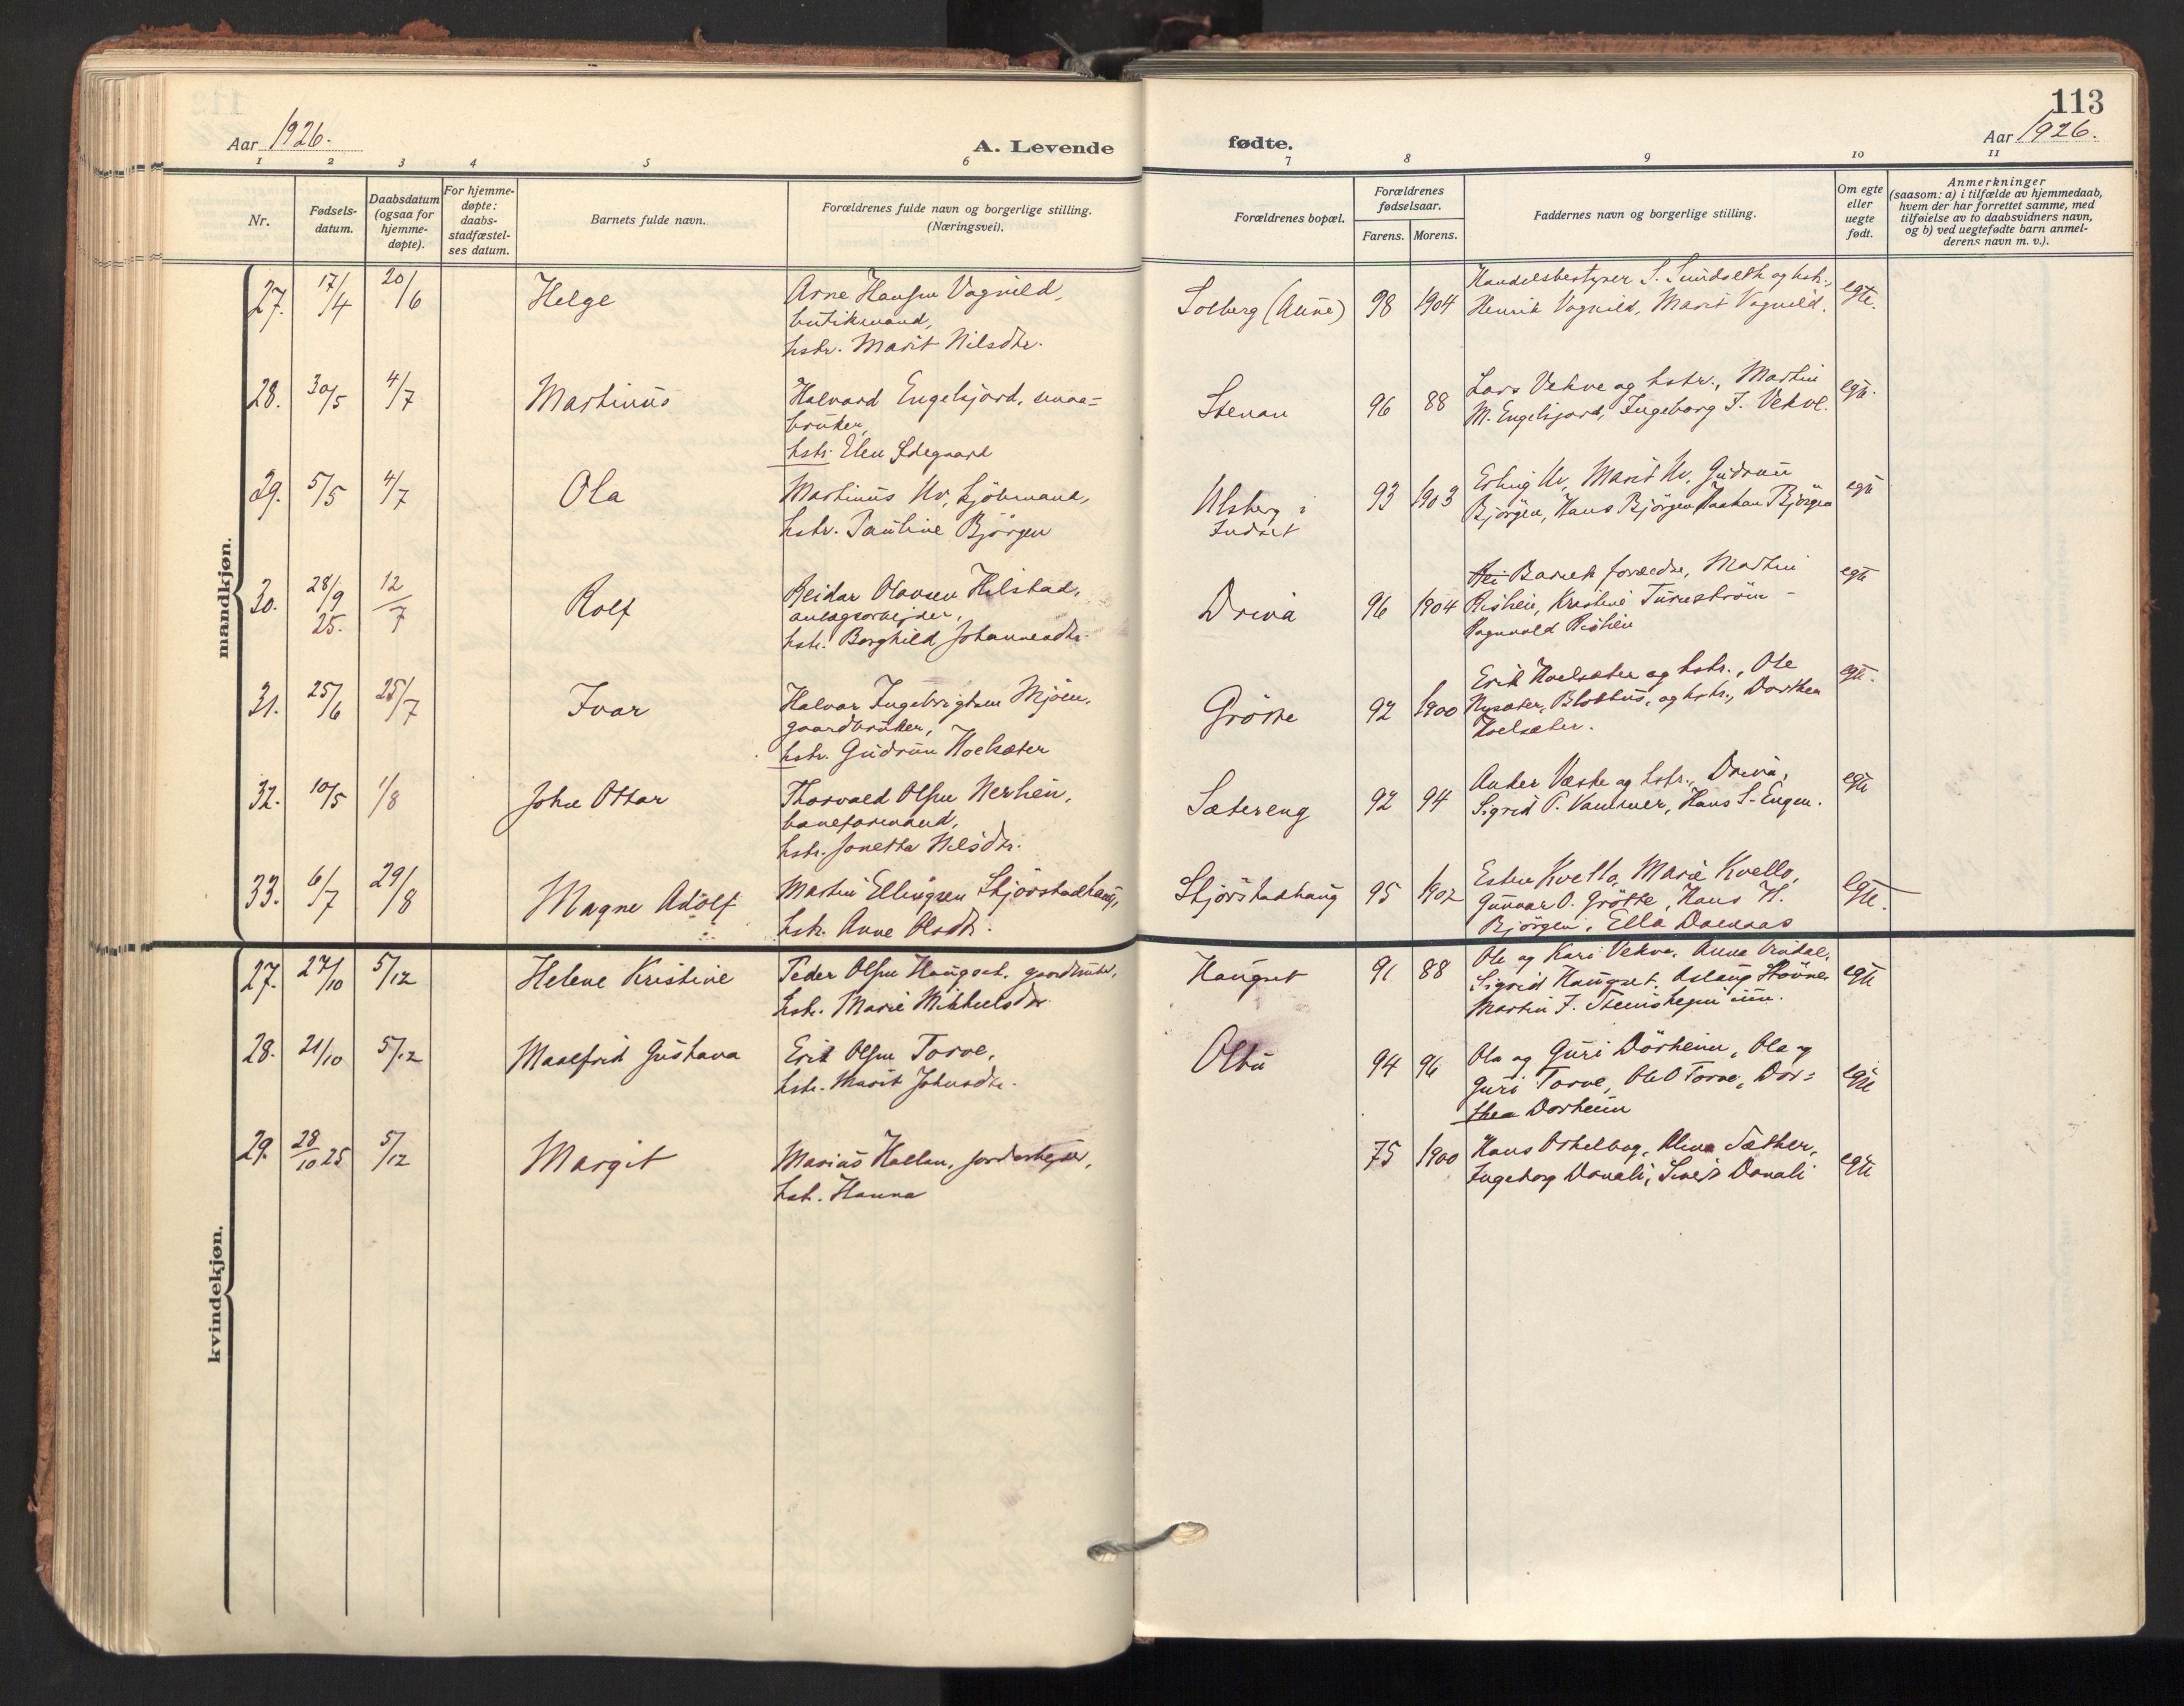 113
Aar 1926.
A. Levende
fødte.
Aar 1926.
1 2 3 4 5 6 7 8 9 10 11
Nr.
Fødsels-
datum.
Daabsdatum
(ogsaa for
hjemme-
døpte).
For hjemme-
døpte:
daabs-
stadfæstel-
ses datum.
Barnets fulde navn.
Forældrenes fulde navn og borgerlige stilling.
(Næringsvei).
Forældrenes bopæl.
Forældrenes
fødselsaar.
Farens. Morens.
Faddernes navn og borgerlige stilling.
Om egte
eller
uegte
født.
Anmerkninger
(saasom: a) i tilfælde av hjemmedaab,
hvem der har forrettet samme, med
tilføielse av to daabsvidners navn,
og b) ved uegtefødte barn anmel-
derens navn m. v.).
mandkjøn.
27. 17/4 20/6 Helge
Arne Hansen Vognild,
butikmand,
hstr. Marit Nilsdtr.
Solberg (Aune) 98 1904
Handelsbestyrer S. Sundseth og hstr.,
Henrik Vognild, Marit Vognild.
egte.
28. 30/5 4/7 Martinus
Halvard Engelsjord, smaa=
bruker,
hstr. Elen Ødegaard
Stenan 96 88
Lars Vekve og hstr., Martin
M. Engelsjord, Ingeborg J. Vekve.
egte.
29. 5/5 4/7 Ola
Martinus Uv,
hstr. Pauline Bjørgen
Ulsberg i
Indset
93 1903
Erling Uv, Marit Uv, Gudrun
Bjørgen, Hans Bjørgen, Haakon Bjørgen
egte
30. 28/9 25. 12/7 Rolf
Reidar Olausen Hilstad,
anlægsarbeider,
hstr. Borghild Johannesdtr.
Driva 96 1904
Barnets forældre, Martin
Rishein, Kristine
Ragnvald Rishein
egte
31. 25/6 25/7 Ivar
Halvar Ingebrigtsen Mjøen,
gaardbruker,
hstr. Gudrun Hoelsæter
Grøtte 92 1900
Erik Hoelsæter og hstr., Ole
Nysæter, og hstr., Dorthea
Hoelsæter.
egte.
32. 10/5 1/8 John Ottar
Thorvald Olsen Nerhein,
baneformand,
hstr. Jonetta Nilsdtr.
Sætereng 92 94
Anker Væske og hstr., Driva,
Sigrid P. Vammer, Hans S. Engen.
egte
33. 6/7 29/8 Magne Adolf
Martin Ellingsen Skjørstadhaug,
hstr. Anne Olsdtr.
Skjørstadhaug 95 1902
Esten Kvello, Marie Kvello,
Gunnar O. Grøtte, Hans H.
Bjørgen, Ella Dalenaas
egte.
kvindekjøn.
27. 27/10 5/12 Helene Kristine
Peder Olsen Haugset, gaardbruker,
hstr. Marie Mikkelsdtr.
Haugset 91 88
Ole og Kari Vekve, Anna Vindal,
Sigrid Haugset, Aslaug Støvne,
Martin J. Stenshejm jun.
egte
28. 21/10 5/12 Maalfrid Gustava
Erik Olsen Torve,
hstr. Marit Johnsdtr.
Olbu 94 96
Ola og Guri Dørheim, Ola og
Guri Torve, Ole O Torve, Dor=
thea Dørheim
egte
29. 28/10 25 5/12 Margit
Marius Hallan,
hstr. Hanna
75 1900
Hans Oskelbog, Olina Sæther,
Ingeborg Donali, Sivert Donali
egte